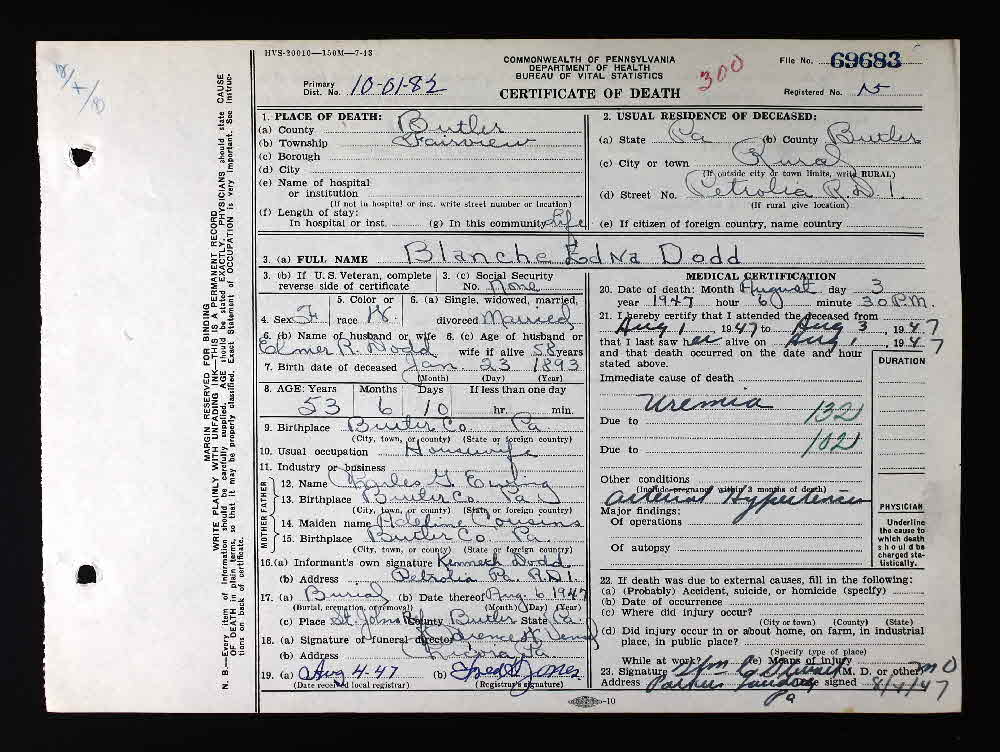 HVS-20010—150M—7-43
COMMONWEALTH OF PENNSYLVANIA
DEPARTMENT OF HEALTH
BUREAU OF VITAL STATISTICS
CERTIFICATE OF DEATH
300
File No. 69683
Primary Dist. No. 10-01-82
Registered No. 15
MARGIN RESERVED FOR BINDING
WRITE PLAINLY WITH UNFADING INK—THIS IS A PERMANENT RECORD
N. B.—Every item of information should be carefully supplied. AGE should be stated EXACTLY. PHYSICIANS should state CAUSE
OF DEATH in plain terms, so that it may be properly classified. Exact Statement of OCCUPATION is very important. See instruc-
tions on back of certificate.
1. PLACE OF DEATH:
(a) County Butler
(b) Township Fairview
(c) Borough
(d) City
(e) Name of hospital
or institution
(If not in hospital or inst. write street number or location)
(f) Length of stay:
In hospital or inst. (g) In this community life
2. USUAL RESIDENCE OF DECEASED:
(a) State Pa (b) County Butler
(c) City or town Rural
(If outside city or town limits, write RURAL)
(d) Street No. Petrolia R.D 1.
(If rural give location)
(e) If citizen of foreign country, name country
3. (a) FULL NAME Blanche Edna Dodd
3. (b) If U.S. Veteran, complete
reverse side of certificate
3. (c) Social Security
No. None
4. Sex F
5. Color or
race W.
6. (a) Single, widowed, married,
divorced Married
6. (b) Name of husband or wife
Elmer R. Dodd
6. (c) Age of husband or
wife if alive 58 years
7. Birth date of deceased Jan. 23 1893
(Month) (Day) (Year)
8. AGE: Years Months Days If less than one day
53 6 10 hr. min.
9. Birthplace Butler Co. Pa.
(City, town, or county) (State or foreign country)
10. Usual occupation Housewife
11. Industry or business
FATHER
12. Name Charles G. Ewing
13. Birthplace Butler Co. Pa.
(City, town, or county) (State or foreign country)
MOTHER
14. Maiden name Adeline Cousins
15. Birthplace Butler Co. Pa.
(City, town, or county) (State or foreign country)
16.(a) Informant's own signature Kenneth Dodd
(b) Address Petrolia Pa. R.D 1.
17. (a) Burial (b) Date thereof Aug. 6 1947
(Burial, cremation, or removal) (Month) (Day) (Year)
(c) Place St. Johns Ref County Butler State Pa.
18. (a) Signature of funeral director
(b) Address Pa
19. (a) Aug 4-47 (b) Fred G Jones
(Date received local registrar) (Registrar's signature)
MEDICAL CERTIFICATION
20. Date of death: Month August day 3
year 1947 hour 6 minute 30 P.M.
21. I hereby certify that I attended the deceased from
Aug 1, 1947 to Aug 3, 1947
that I last saw her alive on Aug 1, 1947
and that death occurred on the date and hour
stated above.
DURATION
Immediate cause of death
Uremia
Due to 132
Due to 102
Other conditions
(Include pregnancy within 3 months of death)
Arterial Hypertension
Major findings:
Of operations
Of autopsy
PHYSICIAN
Underline
the cause to
which death
should be
charged sta-
tistically.
22. If death was due to external causes, fill in the following:
(a) (Probably) Accident, suicide, or homicide (specify)
(b) Date of occurrence
(c) Where did injury occur?
(City or town) (County) (State)
(d) Did injury occur in or about home, on farm, in industrial
place, in public place?
(Specify type of place)
While at work? (e) Means of injury
23. Signature Wm (M. D. or other) M D
Address Parkers Landing Pa Date signed 8/4/47
10